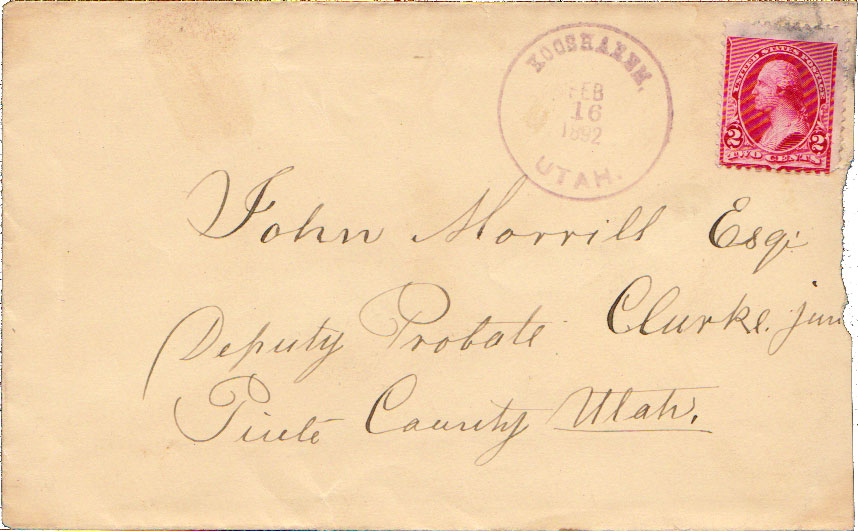 KOOSHAREM,
FEB
16
1892
UTAH.
UNITED STATES POSTAGE
2 2
TWO CENTS
John Morrill Esq:
Deputy Probate Clurke. Jun
Piute County Utah.